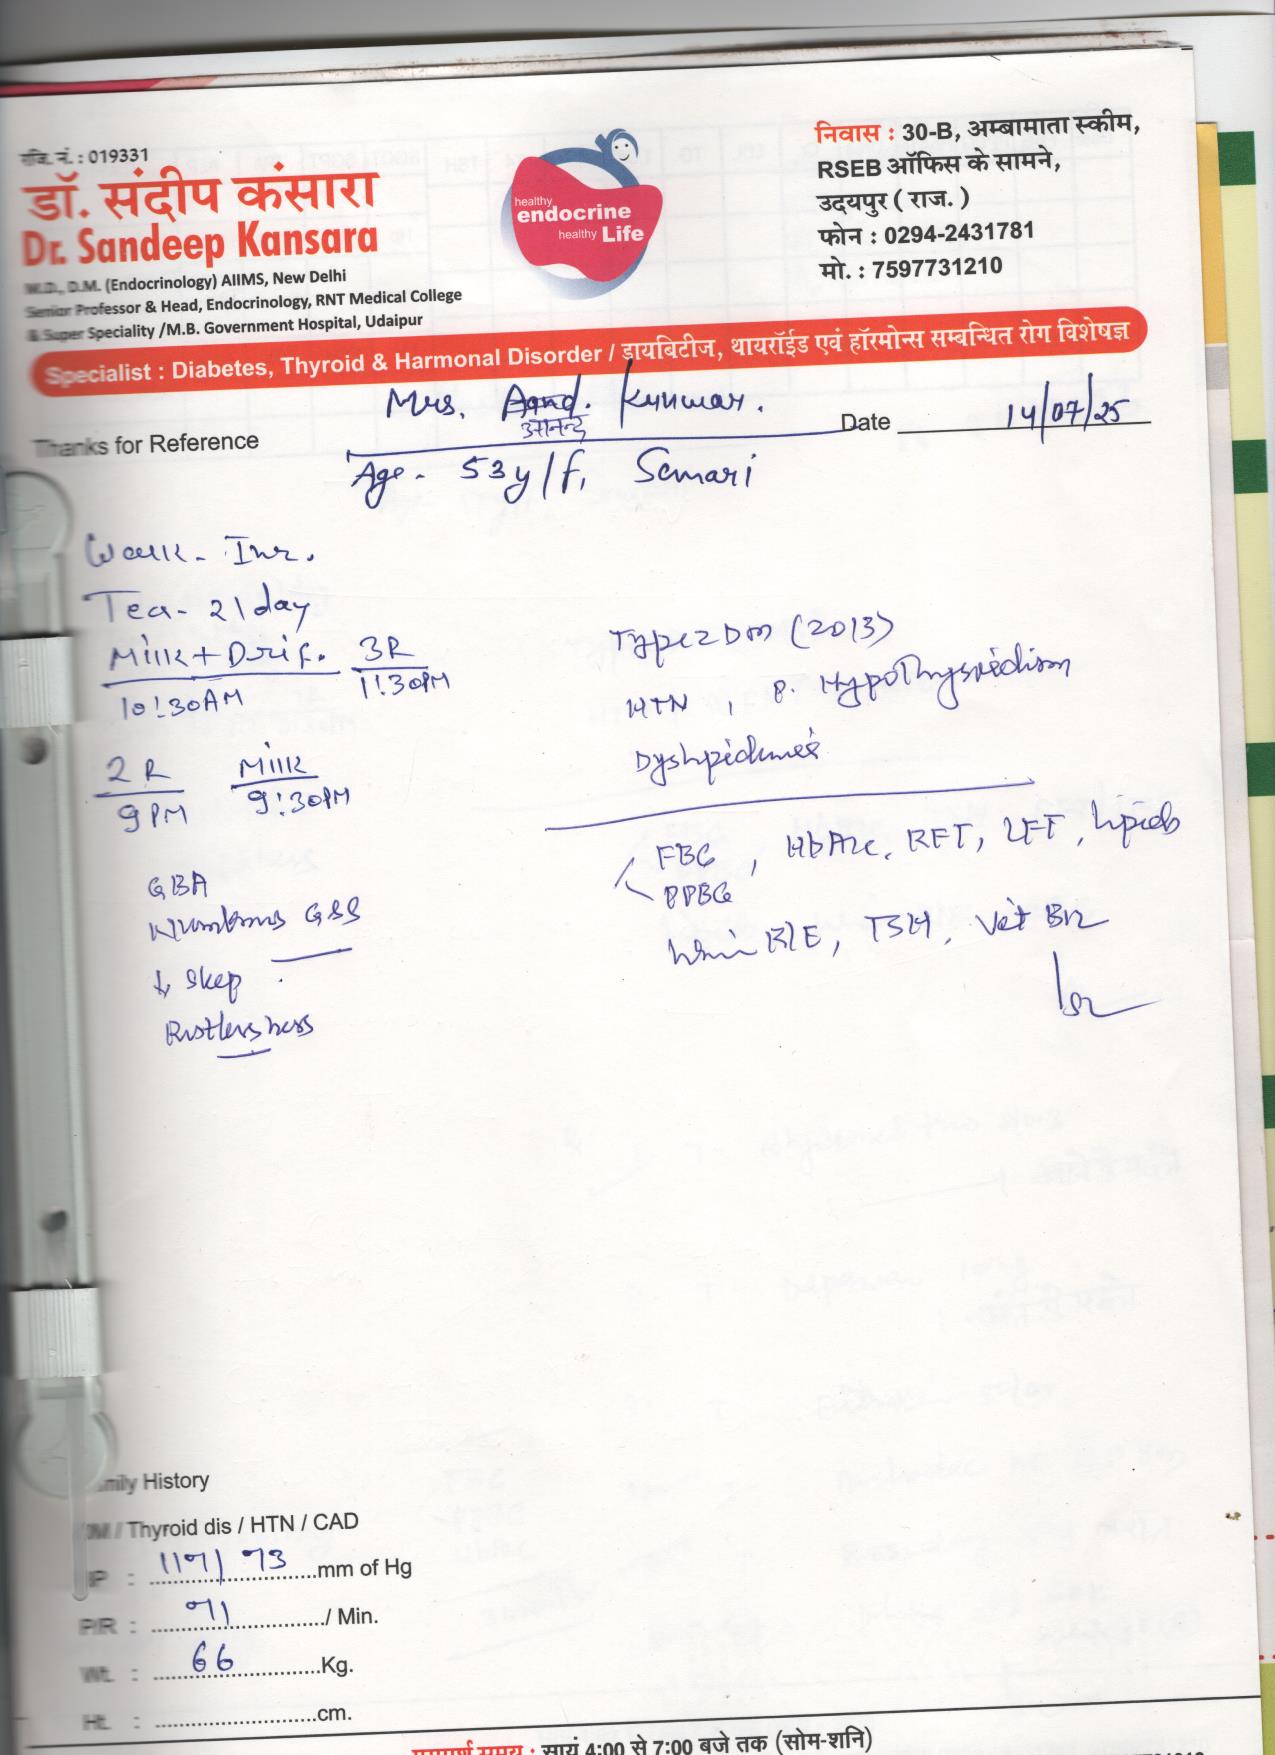 रजि. नं. : 019331
डॉ. संदीप कंसारा
Dr. Sandeep Kansara
M.D., D.M. (Endocrinology) AIIMS, New Delhi
Senior Professor & Head, Endocrinology, RNT Medical College
& Super Speciality /M.B. Government Hospital, Udaipur
healthy
endocrine
healthy Life
निवास : 30-B, अम्बामाता स्कीम,
RSEB ऑफिस के सामने,
उदयपुर ( राज. )
फोन : 0294-2431781
मो. : 7597731210
Specialist : Diabetes, Thyroid & Harmonal Disorder / डायबिटीज, थायरॉईड एवं हॉरमोन्स सम्बन्धित रोग विशेषज्ञ
Mrs. Kunwar.
आनन्द
Thanks for Reference
Date 14/07/25
Age - 53y/f, Semari
Walk - Irr.
Tea - 2/day
Milk + 3R
10:30AM 1:30PM
2R Milk
9PM 9:30PM
GBA
Numbness
↓ Sleep
Restlessness
Type 2 DM (2013)
HTN, P. Hypothyroidism
Dyslipidemia
FBG, HbA1c, RFT, LFT, Lipids
PPBG
Urine R/E, TSH, Vit B12
Family History
DM / Thyroid dis / HTN / CAD
BP : 117/73 mm of Hg
P/R : 71 / Min.
Wt. : 66 Kg.
Ht. : cm.
परामर्श समय : सायं 4:00 से 7:00 बजे तक (सोम-शनि)